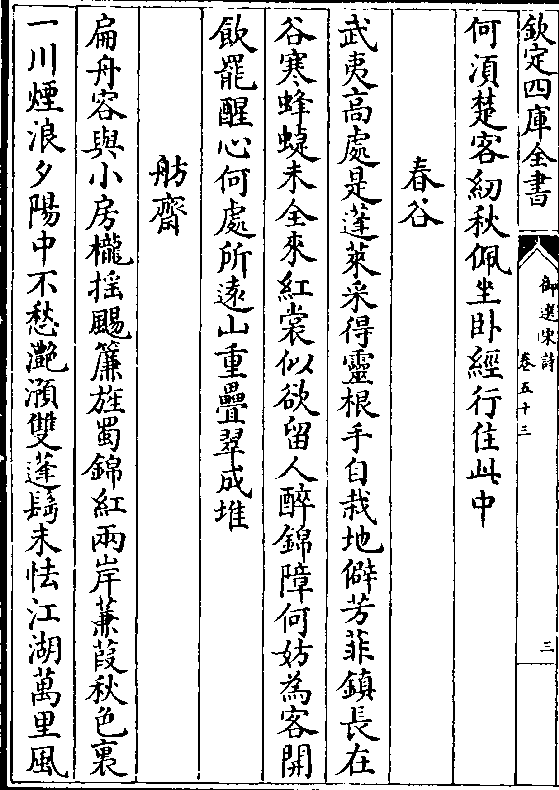 欽定四庫全書
御選宋詩
卷五十三
三
何須楚客紉秋佩坐卧經行住此中
春谷
武夷高處是蓬萊采得靈根手自栽地僻芳菲鎮長在
谷寒蜂蜨未全來紅裳似欲留人醉錦障何妨為客開
飲罷醒心何處所遠山重疊翠成堆
舫齋
扁舟容與小房櫳摇颺簾旌蜀錦紅兩岸蒹葭秋色裏
一川煙浪夕陽中不愁灔澦雙蓬鬂未怯江湖萬里風